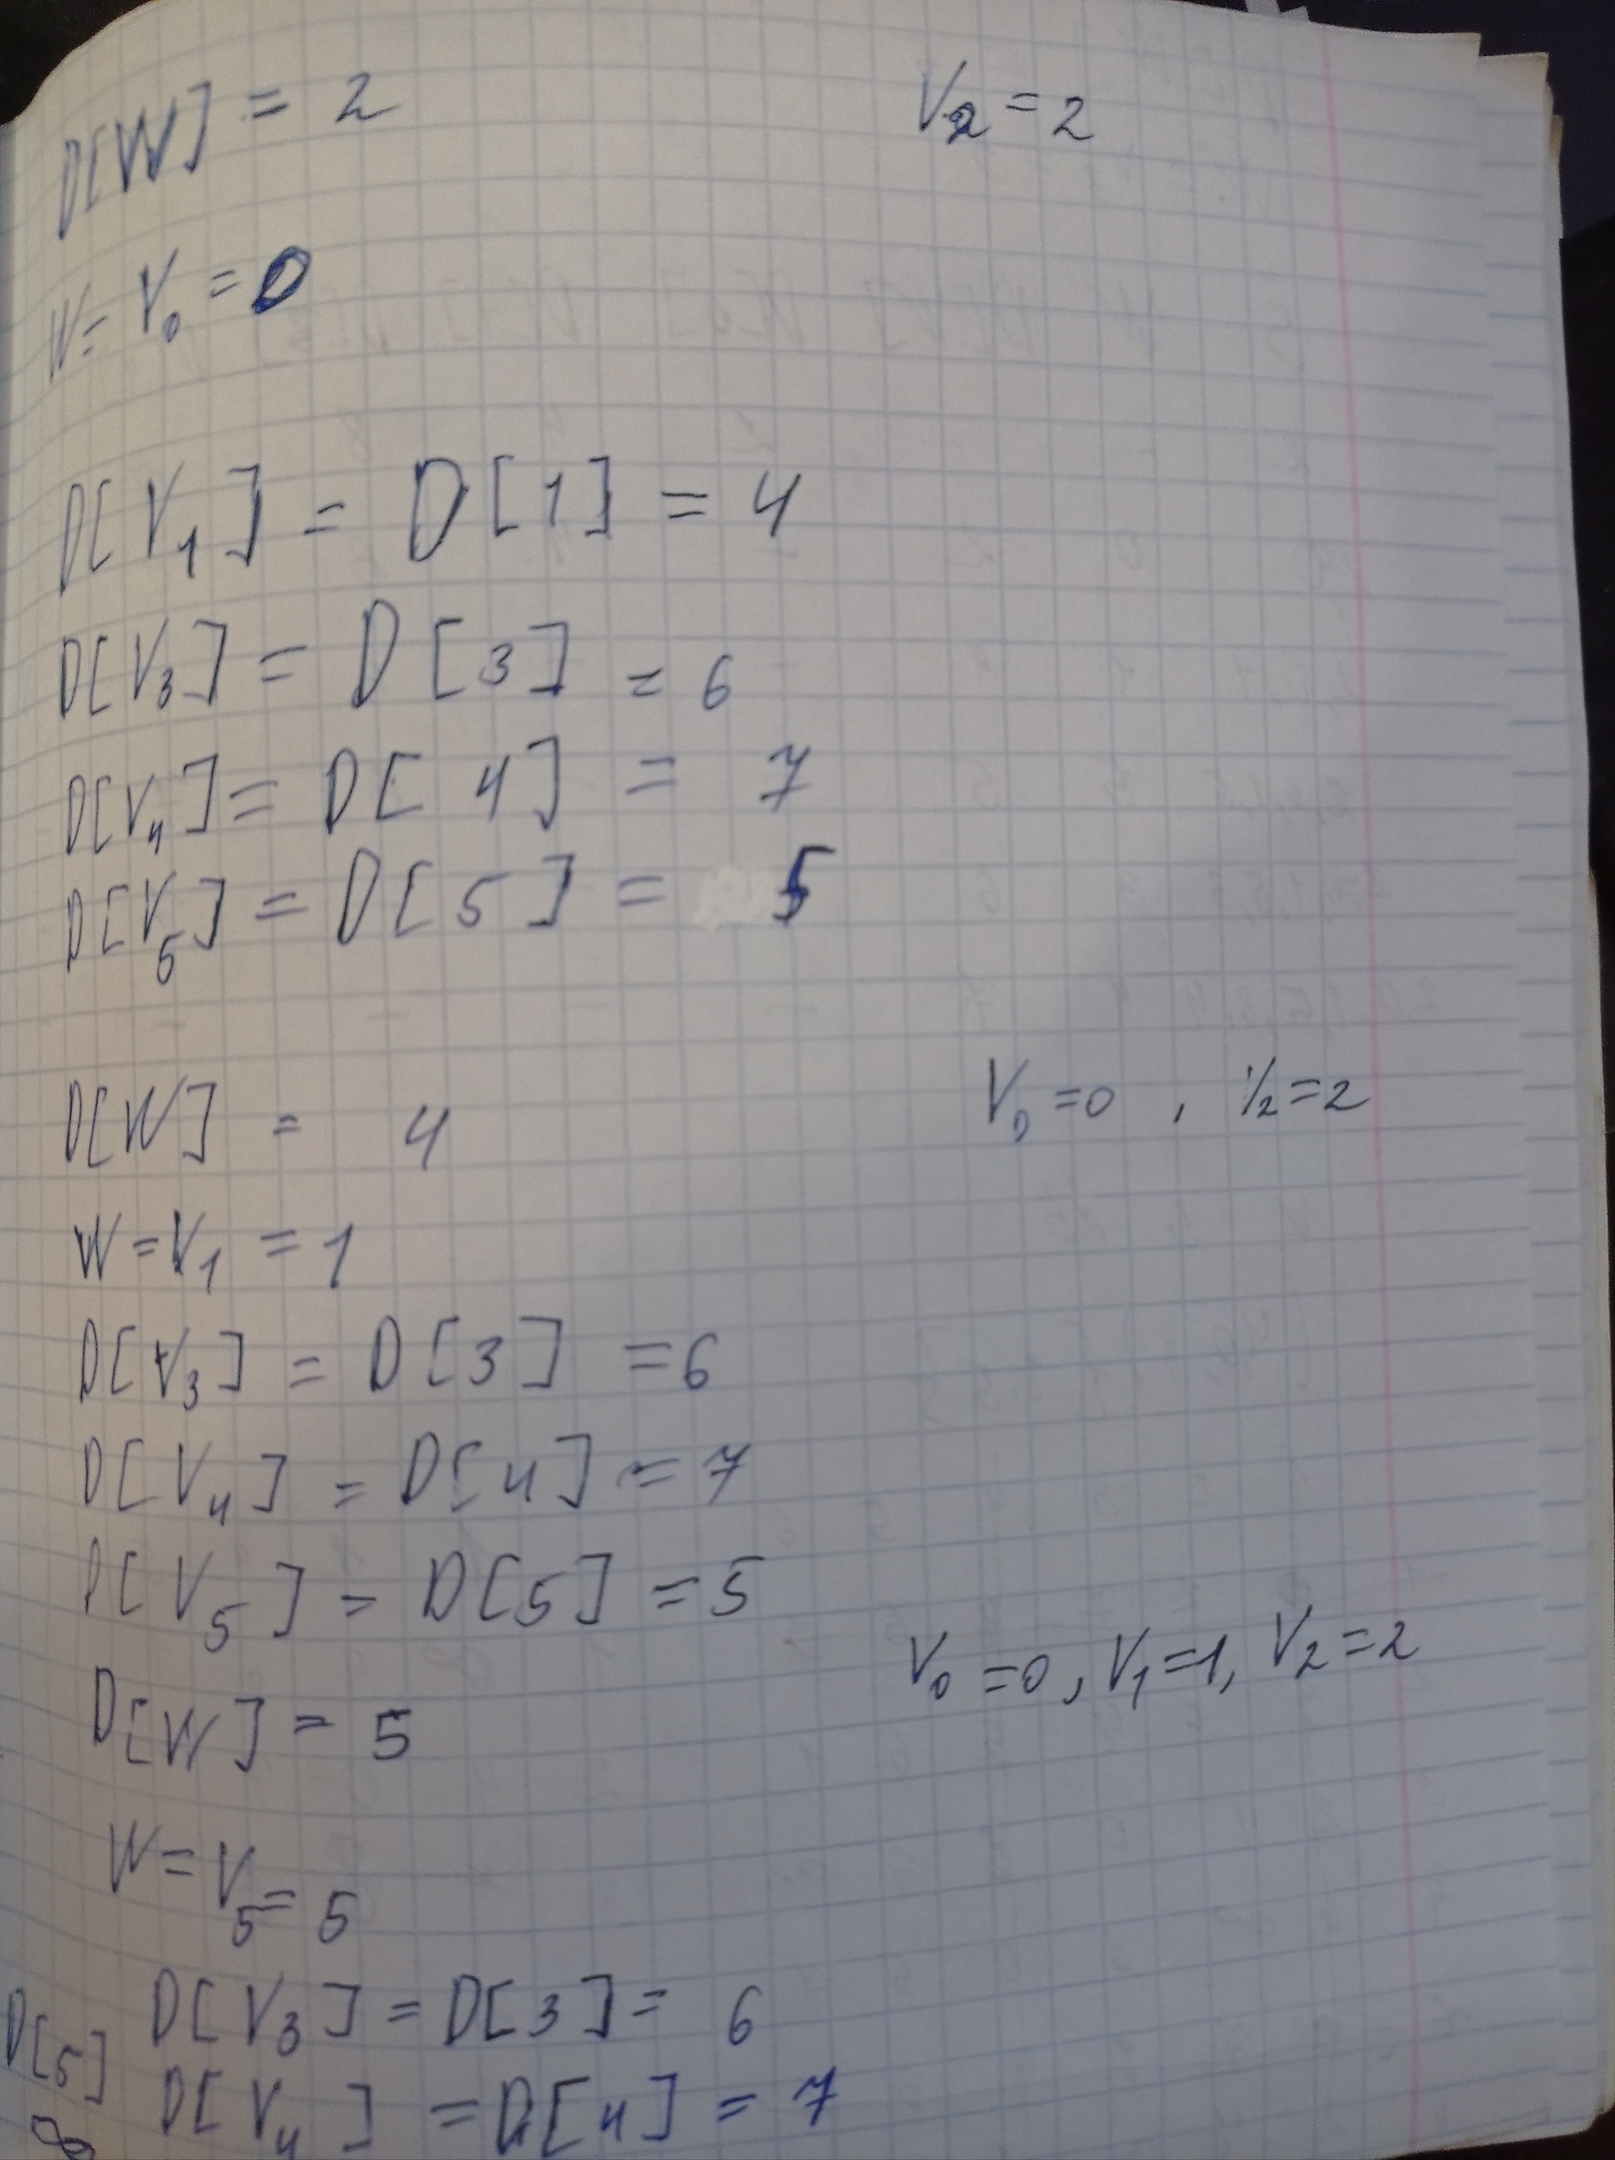 D[W] = 2 V₂ = 2
W = V₀ = 0
D[V₁] = D[1] = 4
D[V₃] = D[3] = 6
D[V₄] = D[4] = 7
D[V₅] = D[5] = 5
D[W] = 4 V₀ = 0, V₂ = 2
W = V₁ = 1
D[V₃] = D[3] = 6
D[V₄] = D[4] = 7
D[V₅] = D[5] = 5
D[W] = 5 V₀ = 0, V₁ = 1, V₂ = 2
W = V₅ = 5
D[V₃] = D[3] = 6
D[5]
D[V₄] = D[4] = 7
∞